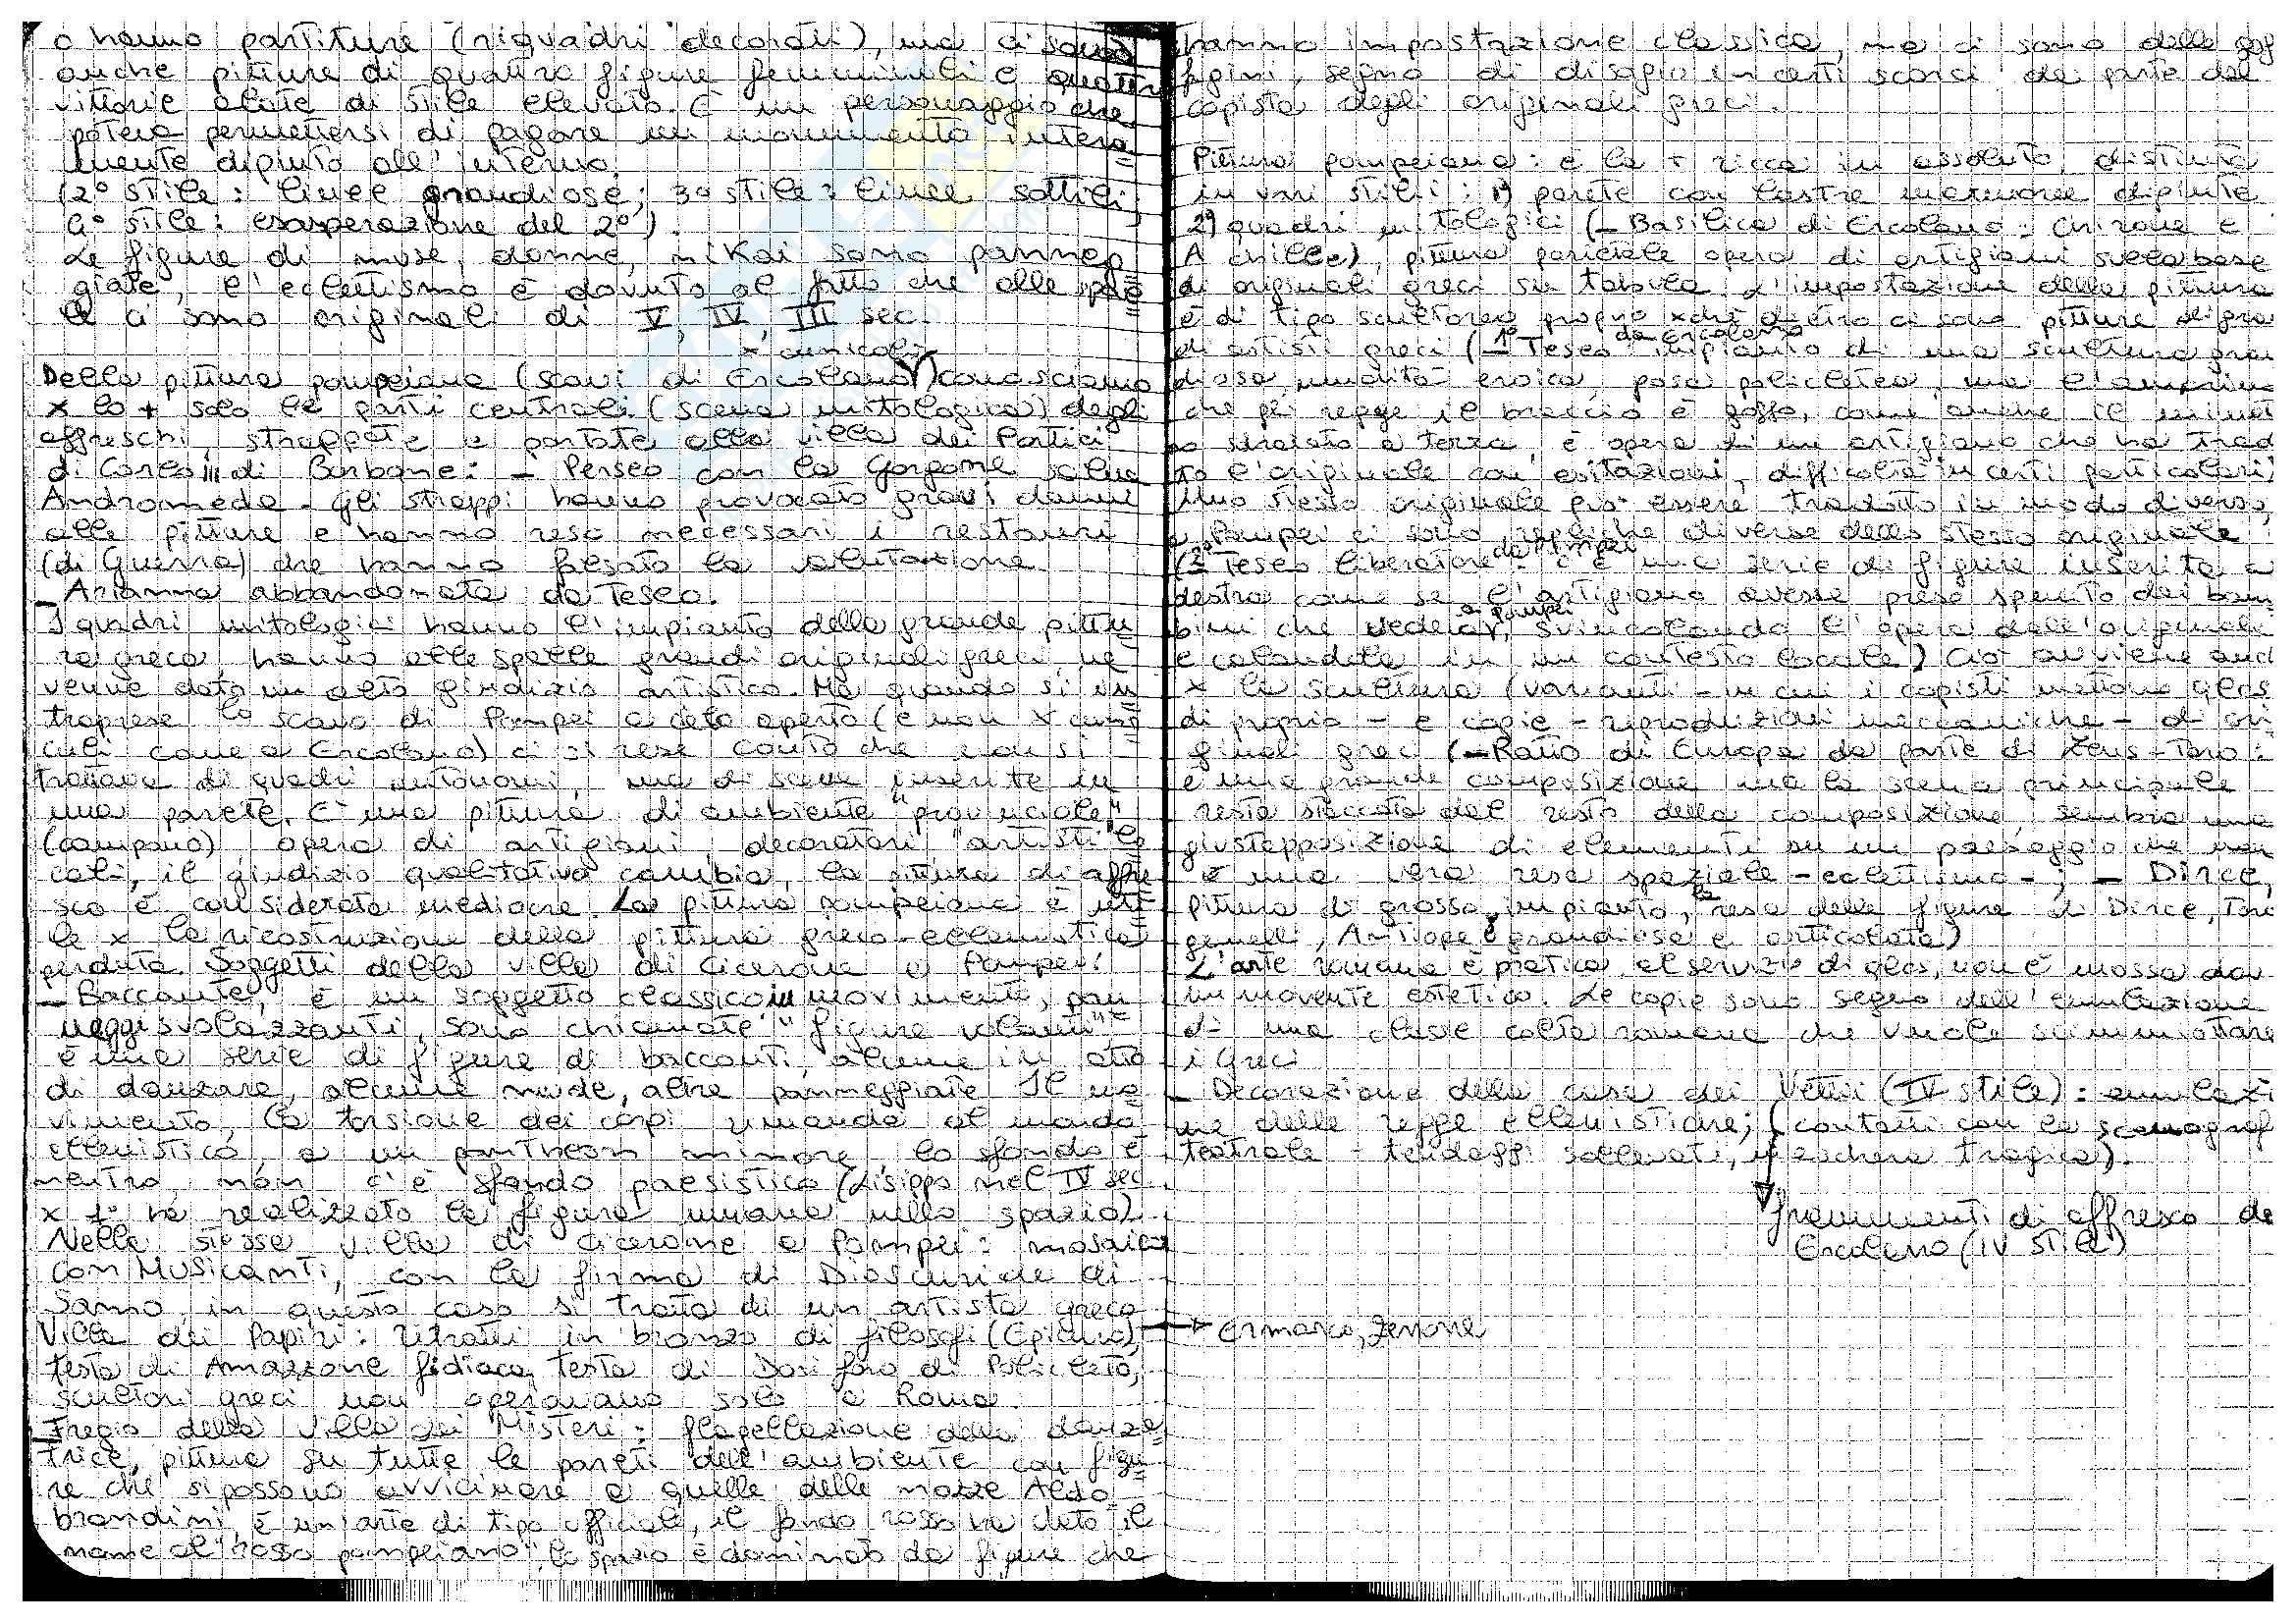 o hanno partiture (riquadri decorati), ma ci sono
anche pitture di quattro figure femminili e quattro
vittorie alate di stile elevato. È un personaggio che
poteva permettersi di pagare un monumento intera=
mente dipinto all'interno.
(2° stile: linee grandiose; 3° stile: linee sottili;
4° stile: esasperazione del 2°).
Le figure di muse, donne, nikai sono panneg=
giate, l'eclettismo è dovuto al fatto che alle spal=
le ci sono originali di V, IV, III sec.
x cunicoli
Della pittura pompeiana (scavi di Ercolano) conosciamo
x lo + solo le parti centrali (scena mitologica) degli
affreschi, strappate e portate alla villa dei Portici
di Carlo III di Borbone: - Perseo con la Gorgone salva
Andromeda - Gli strappi hanno provocato gravi danni
alle pitture e hanno reso necessari i restauri
(di Guerra) che hanno falsato la valutazione.
- Arianna abbandonata da Teseo.
I quadri mitologici hanno l'impianto della grande pittu=
ra greca, hanno alle spalle grandi originali greci, ne
venne dato un alto giudizio artistico. Ma quando si in=
traprese lo scavo di Pompei a cielo aperto (e non x cuni=
coli come a Ercolano) ci si rese conto che non si
trattava di quadri autonomi, ma di scene inserite in
una parete. È una pittura di ambiente "provinciale"
(campano) opera di artigiani, decoratori "artisti" lo
cali, il giudizio qualitativo cambia, la pittura di affre
sco è considerata mediocre. La pittura pompeiana è uti
le x la ricostruzione della pittura greco-ellenistica
perduta. Soggetti della villa di Cicerone a Pompei:
- Baccante, è un soggetto classico in movimento, pan
neggi svolazzanti, sono chiamate "figure volanti" =
è una serie di figure di baccanti, alcune in atto
di danzare, alcune nude, altre panneggiate. Il mo=
vimento, la torsione dei corpi rimanda al mondo
ellenistico, a un pantheon minore, lo sfondo è
neutro, non c'è sfondo paesistico (Lisippo nel IV sec.
x 1° ha realizzato la figura umana nello spazio).
Nella stessa villa di Cicerone a Pompei: mosaico
con Musicanti, con la firma di Dioscuride di
Samo, in questo caso si tratta di un artista greco
Villa dei Papiri: ritratti in bronzo di filosofi (Epicuro), → Ermarco, Zenone
testa di Amazzone fidiaca, testa di Doriforo di Policleto,
scultori greci non operavano solo a Roma.
- Fregio della villa dei Misteri: flagellazione della danza=
trice, pittura su tutte le pareti dell'ambiente con figu=
re che si possono avvicinare a quelle delle nozze Aldo=
brandini, è un'arte di tipo ufficiale, il fondo rosso ha dato il
nome al "rosso pompeiano", lo spazio è dominato da figure che
hanno impostazione classica, ma ci sono delle gof
fagini, segno di disagio in certi scorci da parte del
copista degli originali greci.
Pittura pompeiana: è la + ricca in assoluto, distinta
in vari stili: 1) parete con lastre marmoree dipinte
2) quadri mitologici (- Basilica di Ercolano: Chirone e
Achille), pittura parietale opera di artigiani sulla base
di originali greci su tavola. L'impostazione della pittura
è di tipo scultoreo proprio xché dietro ci sono pitture di gran
di artisti greci (- 1° Teseo da Ercolano impianto di una scultura gran
diosa, nudità eroica, posa policletea, ma l'
che gli regge il braccio è goffo, come anche il minot
stratato a terra, è opera di un artigiano che ha trad
to l'originale con esitazioni, difficoltà in certi particolari;
Uno stesso originale può essere tradotto in modo diverso,
a Pompei ci sono repliche diverse dello stesso originale
(- 2° Teseo liberatore da Pompei: c'è una serie di figure inserite a
destra come se l'artigiano avesse preso spunto dai bam
bini che vedeva a Pompei, svincolando l'opera dall'originale
e calandola in un contesto locale) Ciò avviene anch
x la scultura (varianti - in cui i copisti mettono qlcs
di proprio - e copie - riproduzioni meccaniche - di ori
ginali greci (- Ratto di Europa da parte di Zeus-Toro:
è una grande composizione ma la scena principale
resta staccata dal resto della composizione, sembra una
giustapposizione di elementi su un paesaggio che non
è una vera resa spaziale - eclettismo -; - Dirce,
pittura di grosso impianto, la resa delle figure di Dirce, Toro
gemelli, Antiope è grandiosa e articolata)
L'arte romana è pratica, al servizio di qlcs, non è mossa da
un movente estetico. Le copie sono segno dell'emulazione
di una classe colta romana che vuole scimmiottare
i Greci
- Decorazione della casa dei Vettii (IV stile): emulazi
ne delle regge ellenistiche; (contatti con la scenograf
teatrale - tendaggi sollevati, maschera tragica).
frammenti di affresco da
Ercolano (IV stile)